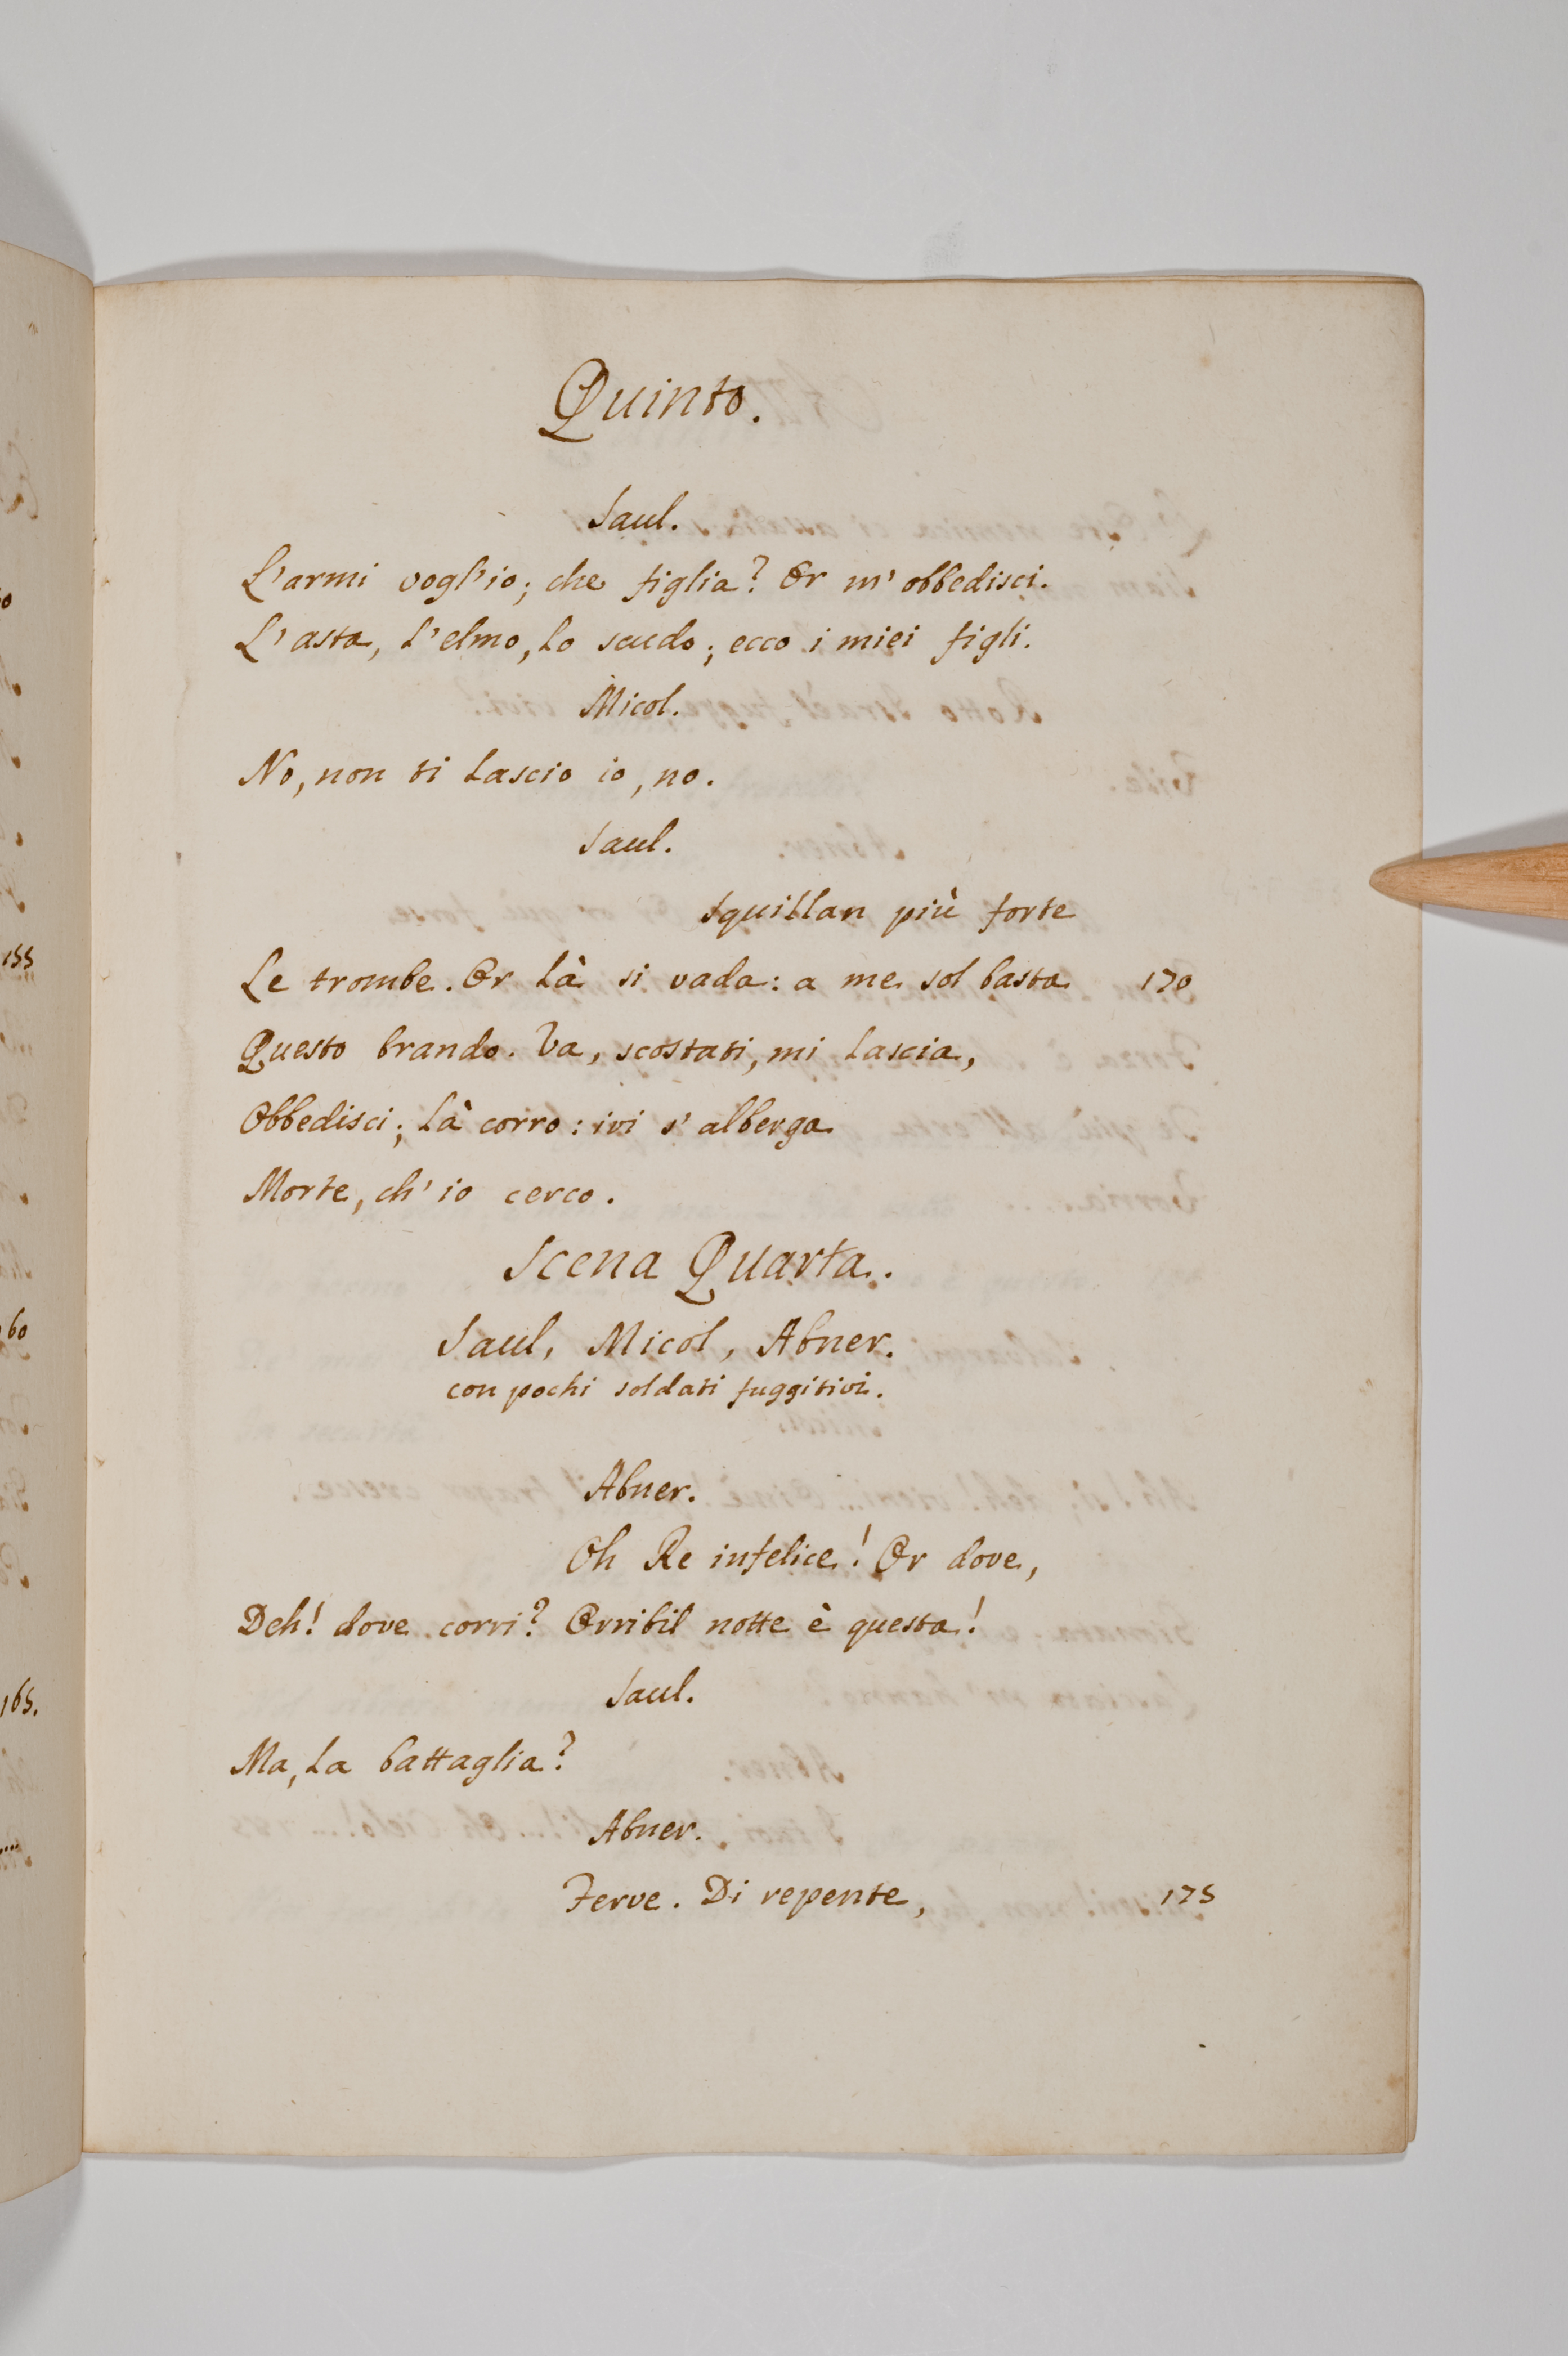 Quinto.
Saul.
L'armi vogl'io; che figlia? Or m'obbedisci.
L'asta, l'elmo, lo scudo; ecco i miei figli.
Micol.
No, non ti lascio io, no.
Saul.
Squillan più forte
Le trombe. Or là si vada: a me sol basta 170
Questo brando. Va, scostati, mi lascia,
Obbedisci; là corro: ivi s'alberga
Morte, ch'io cerco.
Scena Quarta.
Saul, Micol, Abner.
con pochi soldati fuggitivi.
Abner.
Oh Re infelice! Or dove,
Deh! dove corri? Orribil notte è questa!
Saul.
Ma, la battaglia?
Abner.
Ferve. Di repente, 175
155
60
165.